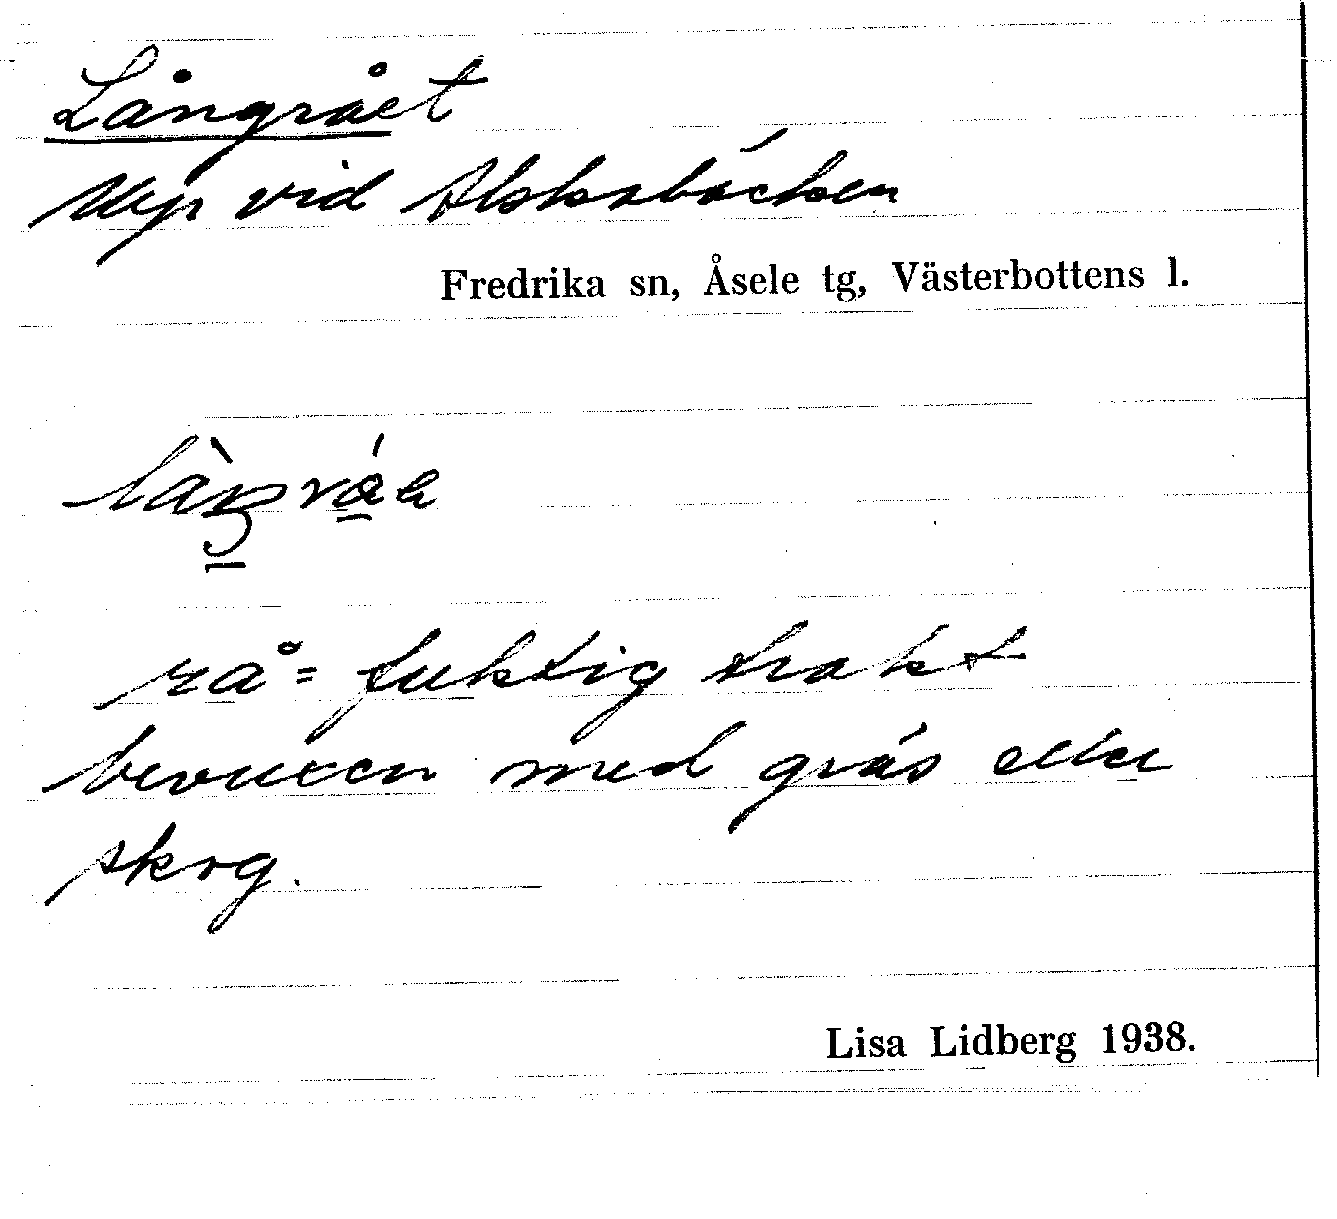 Långrået
Myr vid Abborbäcken
Fredrika sn, Åsele tg, Västerbottens l.
rå = fuktig trakt
bevuxen med gräs eller
skog.
Lisa Lidberg 1938.